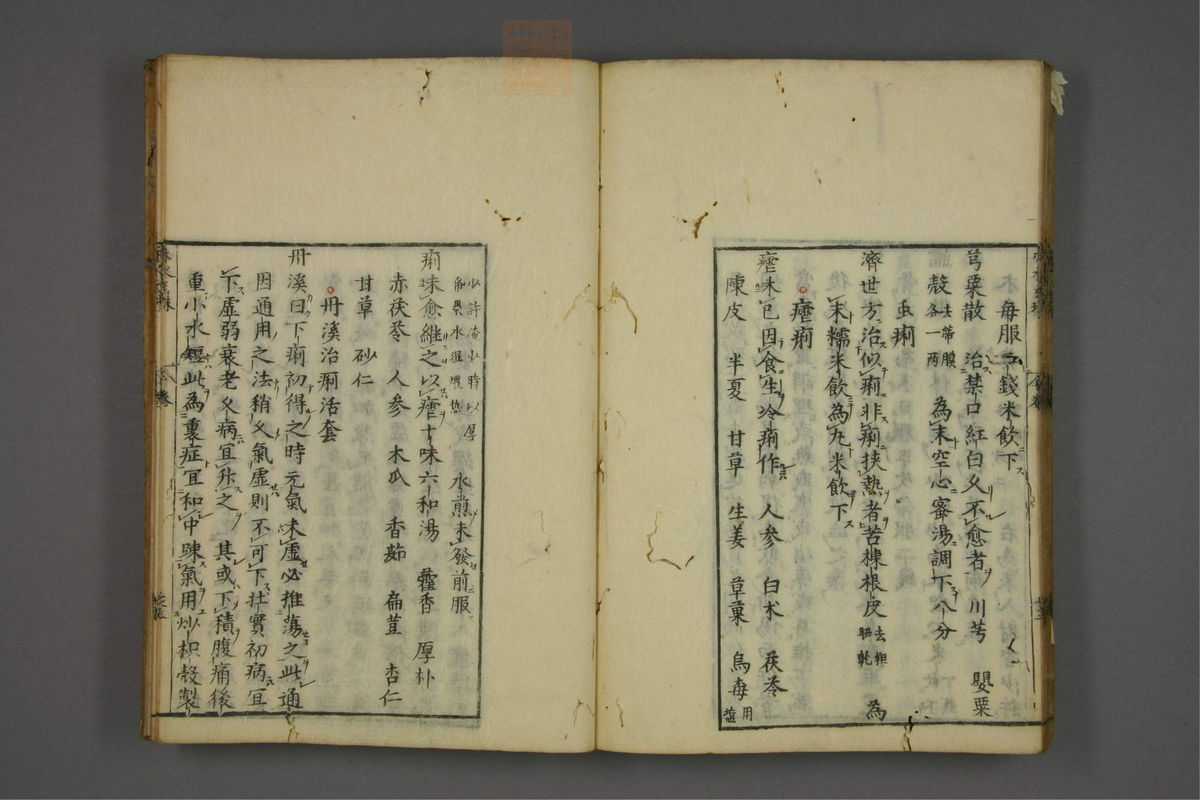 每服二錢米飲下
芎粟散 治禁口紅白久不愈者 川芎 嬰粟
殼去蒂膜各一兩 為末空心蜜湯調下八分
虫痢
濟世方治似痢非痢挾熱者苦楝根皮去粗晒乾 為
末糯米飲為丸米飲下
瘧痢
瘧味已因食生冷痢作 人參 白朮 茯苓
陳皮 半夏 甘草 生姜 草菓 烏毒用塩
少許淹少時以厚
水煎未發前服
痢味愈継之以瘧十味六和湯 藿香 厚朴
赤茯苓 人參 木瓜 香茹 扁荳 杏仁
甘草 砂仁
丹溪治痢活套
丹溪曰下痢初得之時元氣未虛必推蕩之此通
因通用之法稍久氣虛則不可下壮實初病宜
下虛弱衰老久病宜升之 其或下積腹痛後
重小水短此為裏症宜和中疎氣用炒枳殼製